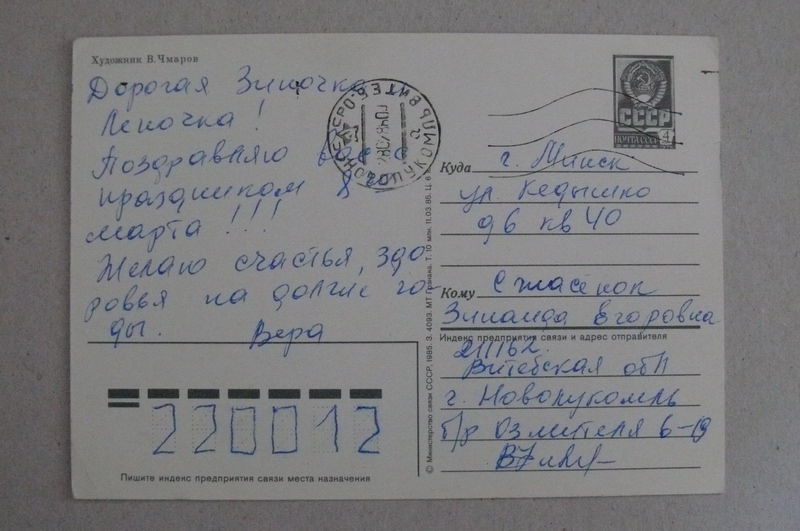 Художник В.Чмаров
Дорогая Зиночка
Леночка!
Поздравляю Вас с
праздником 8
марта!!!
Желаю счастья, здо
ровья на долгие го-
ды. Вера
220012
Пишите индекс предприятия связи места назначения
© Министерство связи СССР, 1985. З. 4093. МТ Гознака. Т. 10 млн. 11.03.85. Ц. 6 к.
СССР
ПОЧТА СССР
4
Куда г. Минск
ул. Кедышко
д6 кв 40
Кому Спасёнок
Зинаида Егоровна
Индекс предприятия связи и адрес отправителя
211162.
Витебская обл
г. Новолукомль
б/р 6-19